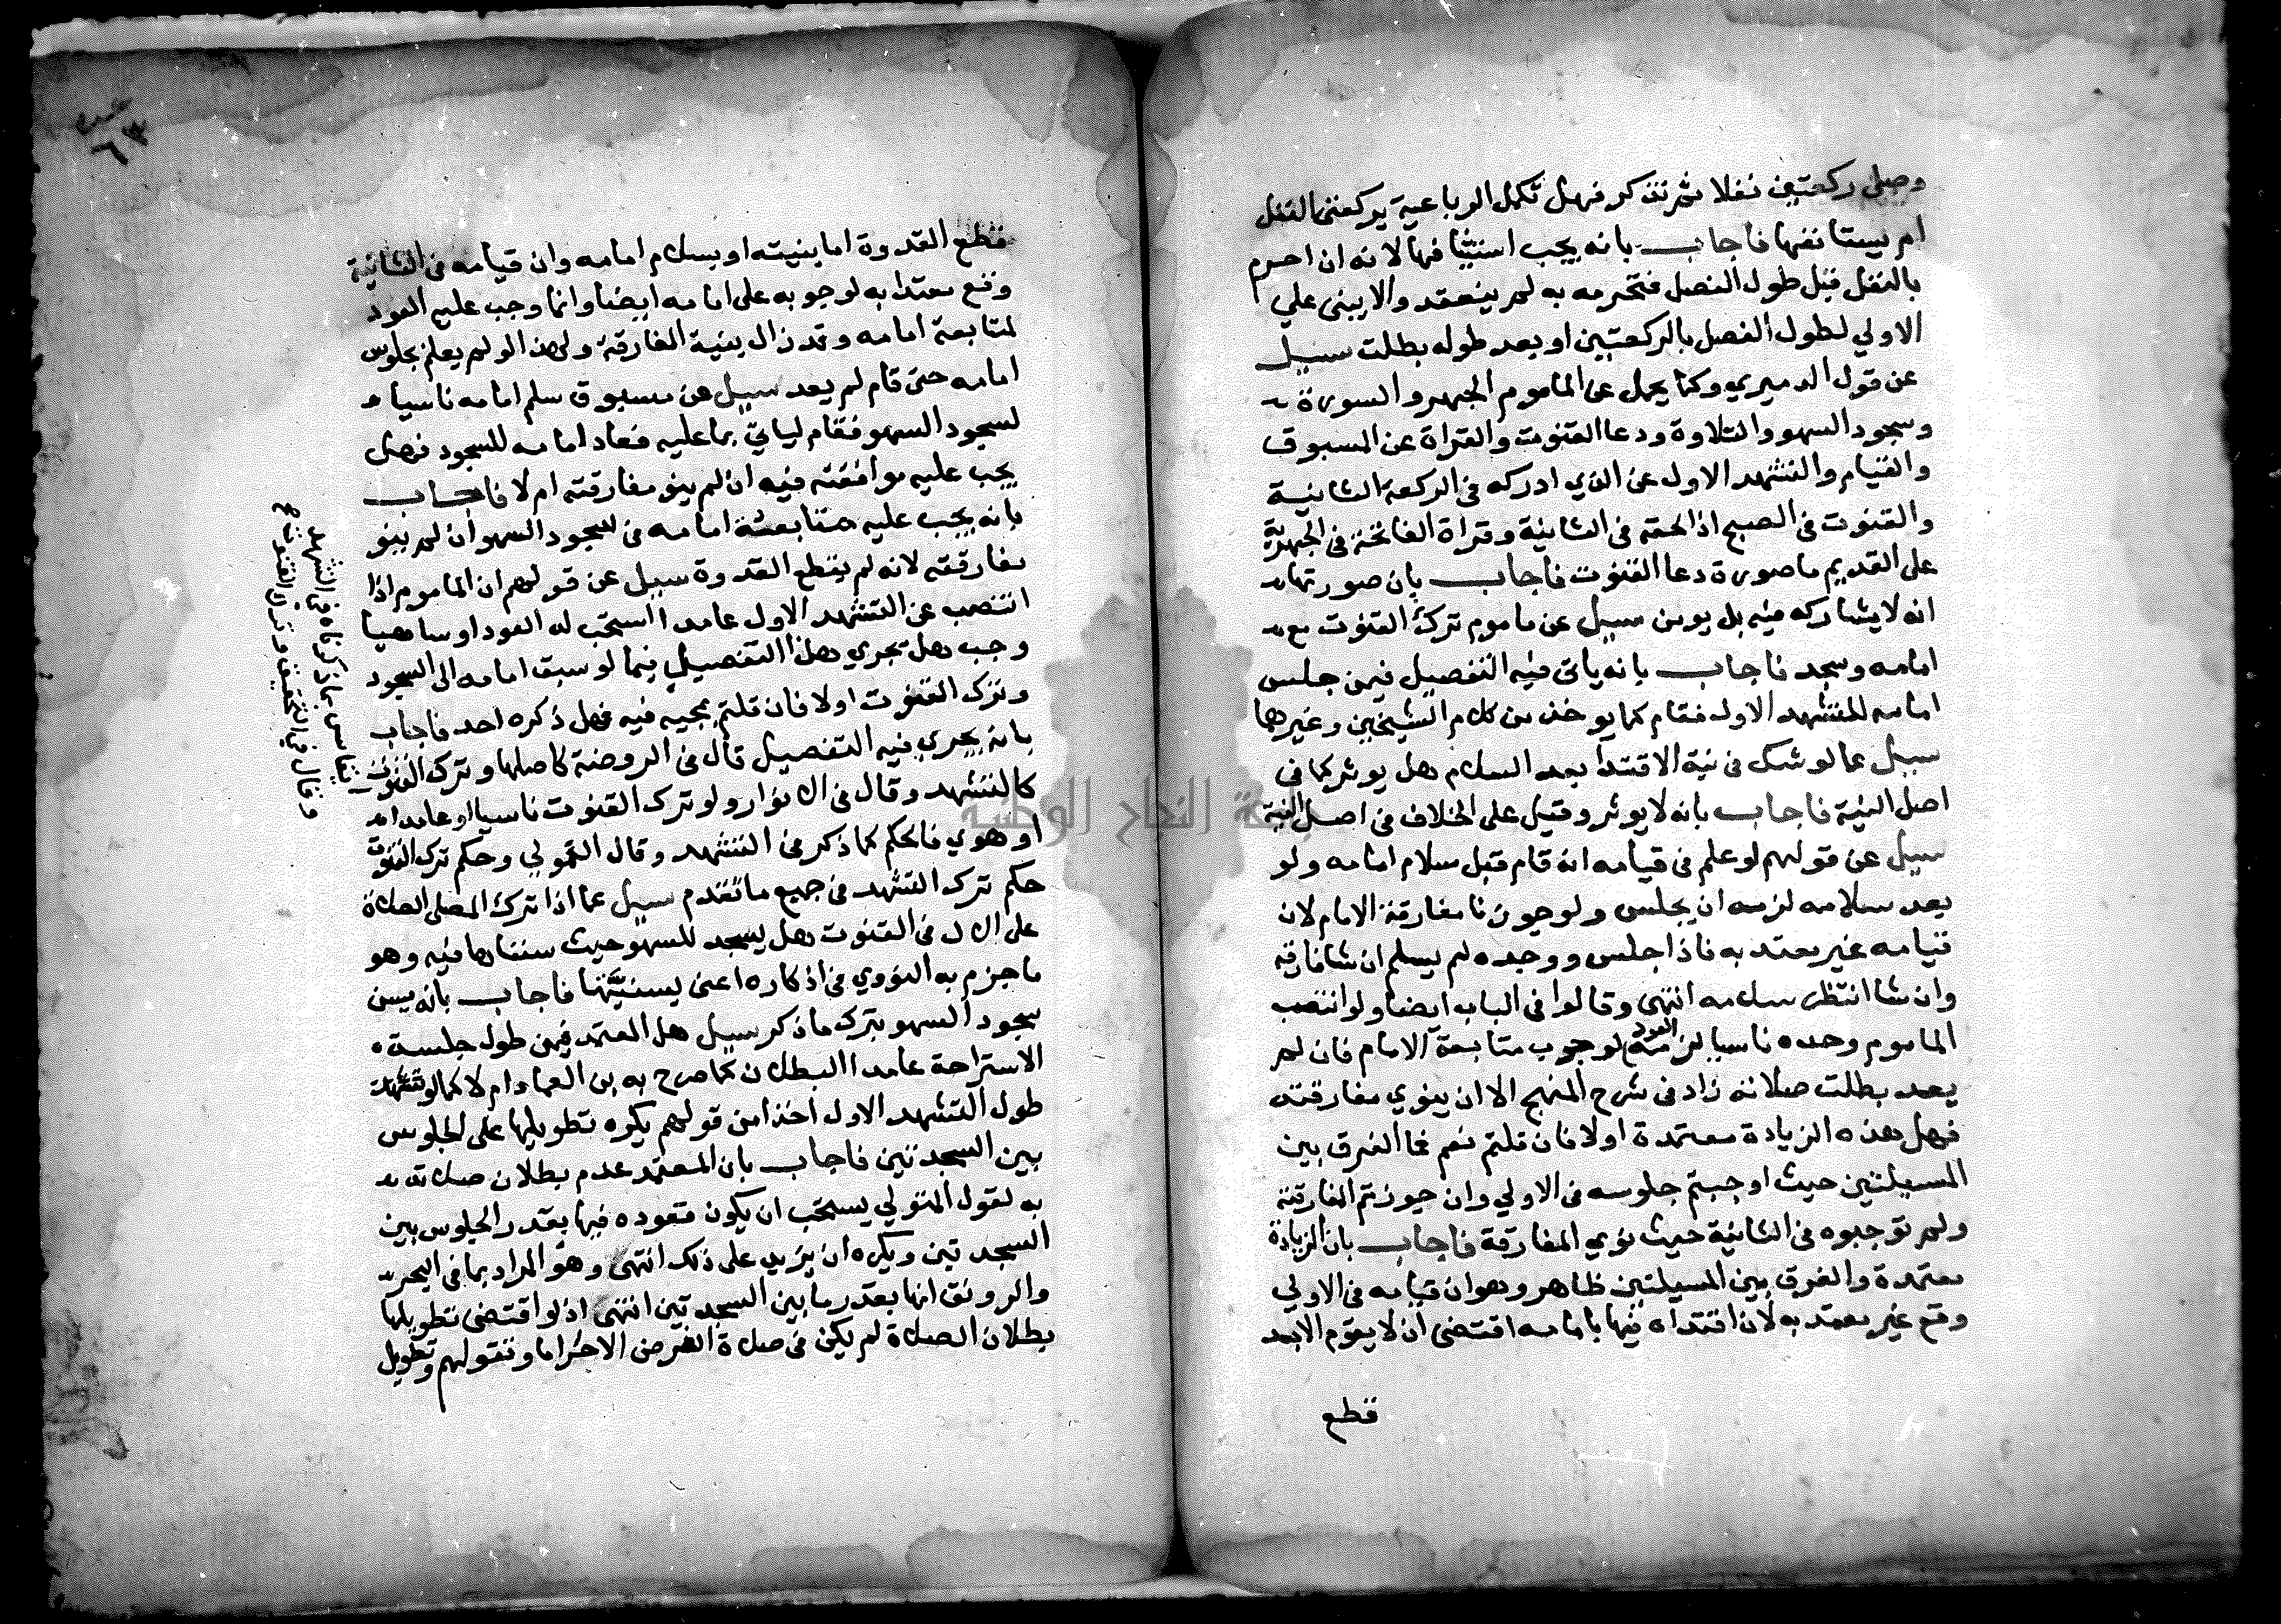 وصلى ركعتين نفلا ثم تذكر فهل تكمل الرباعية بركعتي النفل
ام يستانفها فاجاب بانه يجب استئنافها لانه ان احرم
بالنفل قبل طول الفصل فتحرمه به لم ينعقد والا يبنى علي
الاولي لطول الفصل بالركعتين او بعد طوله بطلت سيل
عن قول الدميري وكما يحمل عن الماموم الجهر والسورة
وسجود السهو والتلاوة ودعا القنوت والقراة عن المسبوق
والقيام والتشهد الاول عن الذي ادركه في الركعة الثانية
والقنوت في الصبح اذا لحقه في الثانية وقراة الفاتحة في الجهرية
على القديم ما صورة دعا القنوت فاجاب بان صورتها
انه لا يشاركه فيه بل يومن سيل عن ماموم ترك القنوت مع
امامه وسجد فاجاب بانه ياتي فيه التفصيل فيمن جلس
امامه للتشهد الاول فقام كما يوخذ من كلام الشيخين وغيرهما
سيل عما لو شك في نية الاقتدا بعد السلام هل يوثر كما في
اصل النية فاجاب بانه لا يوثر وقيل على الخلاف في اصل النية
سيل عن قولهم لو علم في قيامه انه قام قبل سلام امامه ولو
بعد سلامه لزمه ان يجلس ولو جوزنا مفارقة الامام لان
قيامه غير معتد به فاذا جلس ووجده لم يسلم ان شا فارقه
وان شا انتظر سلامه انتهى وقالوا في الباب ايضا ولو انتصب
الماموم وحده ناسيا لزمه العود لوجوب متابعة الامام فان لم
يعد بطلت صلاته زاد في شرح المنهج الا ان ينوي مفارقته
فهل هذه الزيادة معتمدة اولا فان قلتم نعم فما الفرق بين
المسيلتين حيث اوجبتم جلوسه في الاولي وان جوزتم المفارقة
ولم توجبوه في الثانية حيث نوي المفارقة فاجاب بان الزيادة
معتمدة والفرق بين المسيلتين ظاهر وهو ان قيامه في الاولي
وقع غير معتد به لان اقتداه فيها بامامه اقتضى ان لا يقوم الا بعد
قطع
قطع القدوة اما بنيته او بسلام امامه وان قيامه في الثانية
وقع معتدا به لوجوبه على امامه ايضا وانما وجب عليه العود
لمتابعة امامه وقد زال بنية المفارقة ولهذا لو لم يعلم بجلوس
امامه حتى قام لم يعد سيل عن مسبوق سلم امامه ناسيا
لسجود السهو فقام لياتي بما عليه فعاد امامه للسجود فهل
يجب عليه موافقته فيه ان لم ينو مفارقته ام لا فاجاب
بانه يجب عليه متابعة امامه في سجود السهو ان لم ينو
مفارقته لانه لم يقطع القدوة سيل عن قولهم ان الماموم اذا
انتصب عن التشهد الاول عامدا استحب له العود او ساهيا
وجب هل تجري هذا التفصيل فيما لو سبق امامه الى السجود
وترك القنوت اولا فان قلتم بمجيه فيه فهل ذكره احد فاجاب
بانه يجري فيه التفصيل قال في الروضة كاصلها وترك القنوت
كالتشهد وقال في الانوار ولو ترك القنوت ناسيا او عامدا
او هوي فالحكم كما ذكر في التشهد وقال القمولي وحكم ترك القنوت
حكم ترك التشهد في جميع ما تقدم سيل عما اذا ترك المصلى الصلاة
على الال في القنوت هل يسجد للسهو حيث سننارها فيه وهو
ما جزم به النووي في اذكاره اعنى بسنيتها فاجاب بانه يسن
سجود السهو بترك ما ذكر سيل هل المعتمد فيمن طول جلسة
الاستراحة عامدا البطلان كما صرح به بن العماد ام لا كما لو تشهد
طول التشهد الاول اخذا من قولهم يكره تطويلها على الجلوس
بين السجدتين فاجاب بان المعتمد عدم بطلان صلاته
به لقول المتولي يستحب ان يكون قعوده فيها بقدر الجلوس بين
السجدتين ويكره ان يزيد على ذلك انتهى وهو المراد بما في البحر
والرونق انها بقدر ما بين السجدتين انتهى اذ لو اقتضى تطويلها
بطلان الصلاة لم يكن في صلاة الفرض الاحراما ونقولهم وتطويل
بما ذكرناه في التشهد
وقال في التحقيق وترك القنوت
جامعة النجاح الوطنية